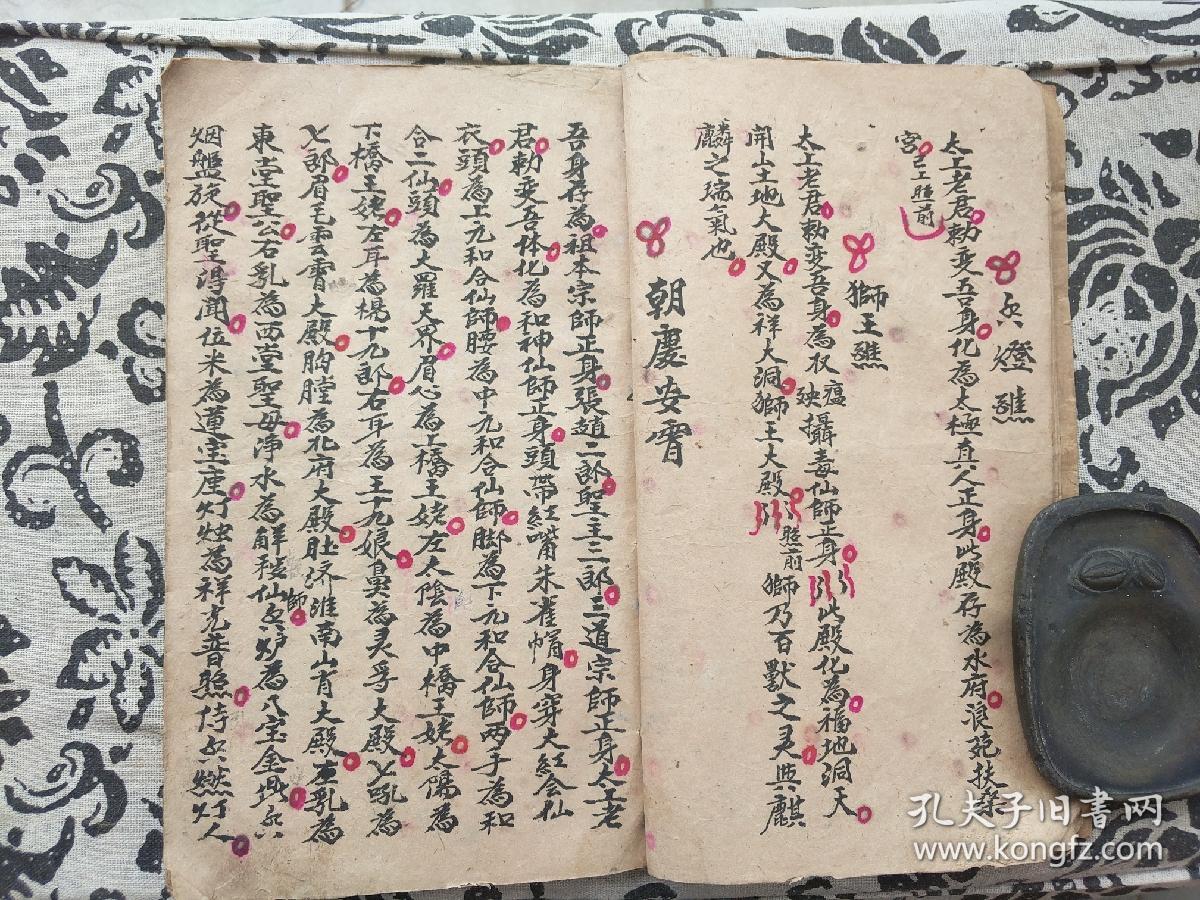 兵燈醮
太上老君敕变吾身化為太極真人正身此殿存為水府浪苑扶
宮
照前
獅王醮
太上老君敕变吾身為收瘟攝毒仙師正身此殿化為福地洞天
開山土地大殿又為祥大洞獅王大殿照前獅乃百獸之灵與麒
麟之瑞氣也
朝慶安霄
吾身存為祖本宗師正身張趙二郎聖主三郎三道宗師正身太上老
君敕变吾体化為和神仙師正身頭帶紅嘴朱雀帽身穿大紅会仙
衣頭為上元和合仙師腰為中元和合仙師脚為下元和合仙師兩手為和
合二仙頭為大羅天界眉心為上橋王姥左太陰為中橋王姥太陽為
下橋王姥左耳為楊十九郎右耳為王十九娘鼻為灵孚大殿七吼為
七郎眉毛雲霄大殿胸膛為化府大殿肚济淮南山肖大殿左乳為
東堂聖公右乳為西堂聖母净水為解穢仙師炉為八宝金
烟盤旋從聖得聞位米為蓮宝座灯烛為祥光普照侍兵燃灯人
孔夫子旧書网
www.kongfz.com